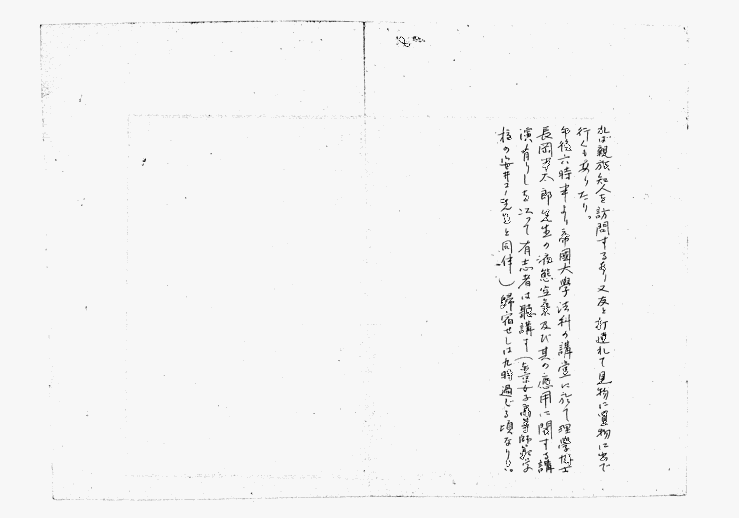 れば親族知人を訪問するあり又友と打連れて見物に買物に出で
行くもありたり。
午後六時半より帝國大學法科の講堂に於て理學博士
長岡半太郎先生の液態空氣及び其の應用に関する講
演有りしを以て有志者は聽講す(東京女子高等師範学
校の安井コノ先生と同伴)帰宿せしは九時過ぎる頃なりし。